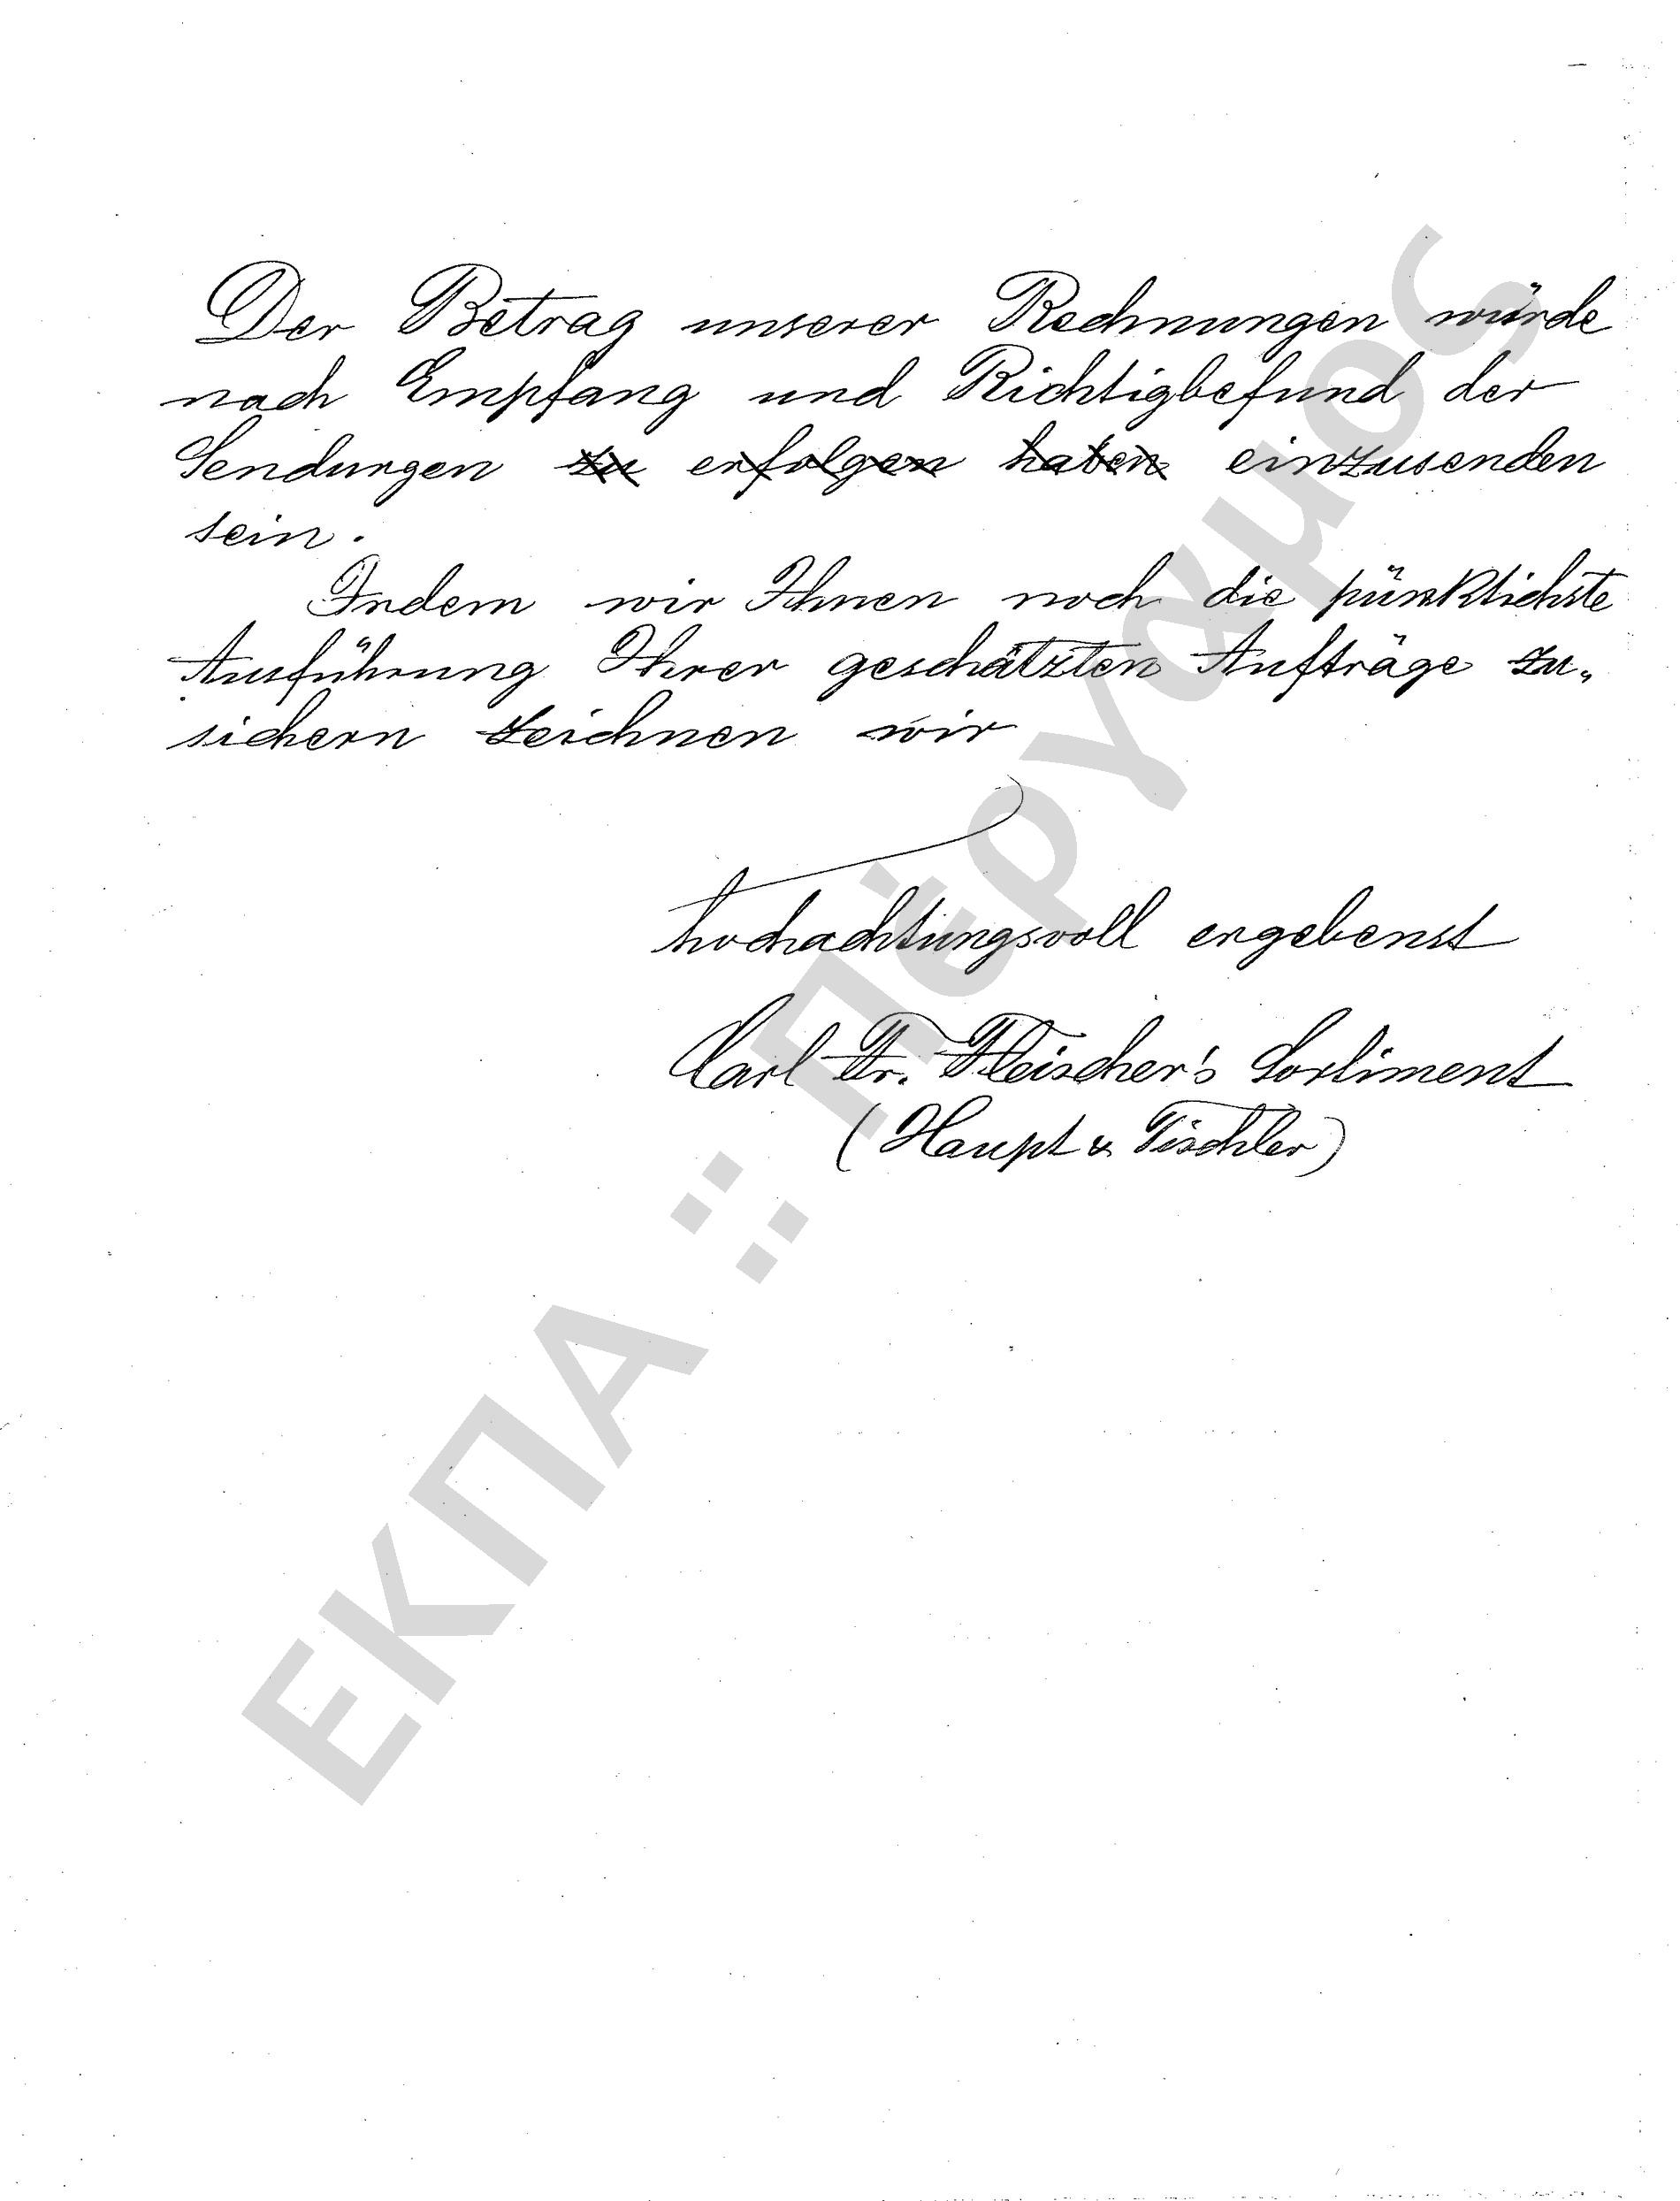 Der Betrag unserer Rechnungen würde
nach Empfang und Richtigbefund der
Sendungen zu erfolgen haben einzusenden
sein.
Indem wir Ihnen noch die pünktlichste
Ausführung Ihrer geschätzten Aufträge zu-
sichern zeichnen wir
hochachtungsvoll ergebenst
Carl Fr. Fleischer's Sortiment
(Haupt & Tischler)
ΕΚΠΑ :: Πέργαμος